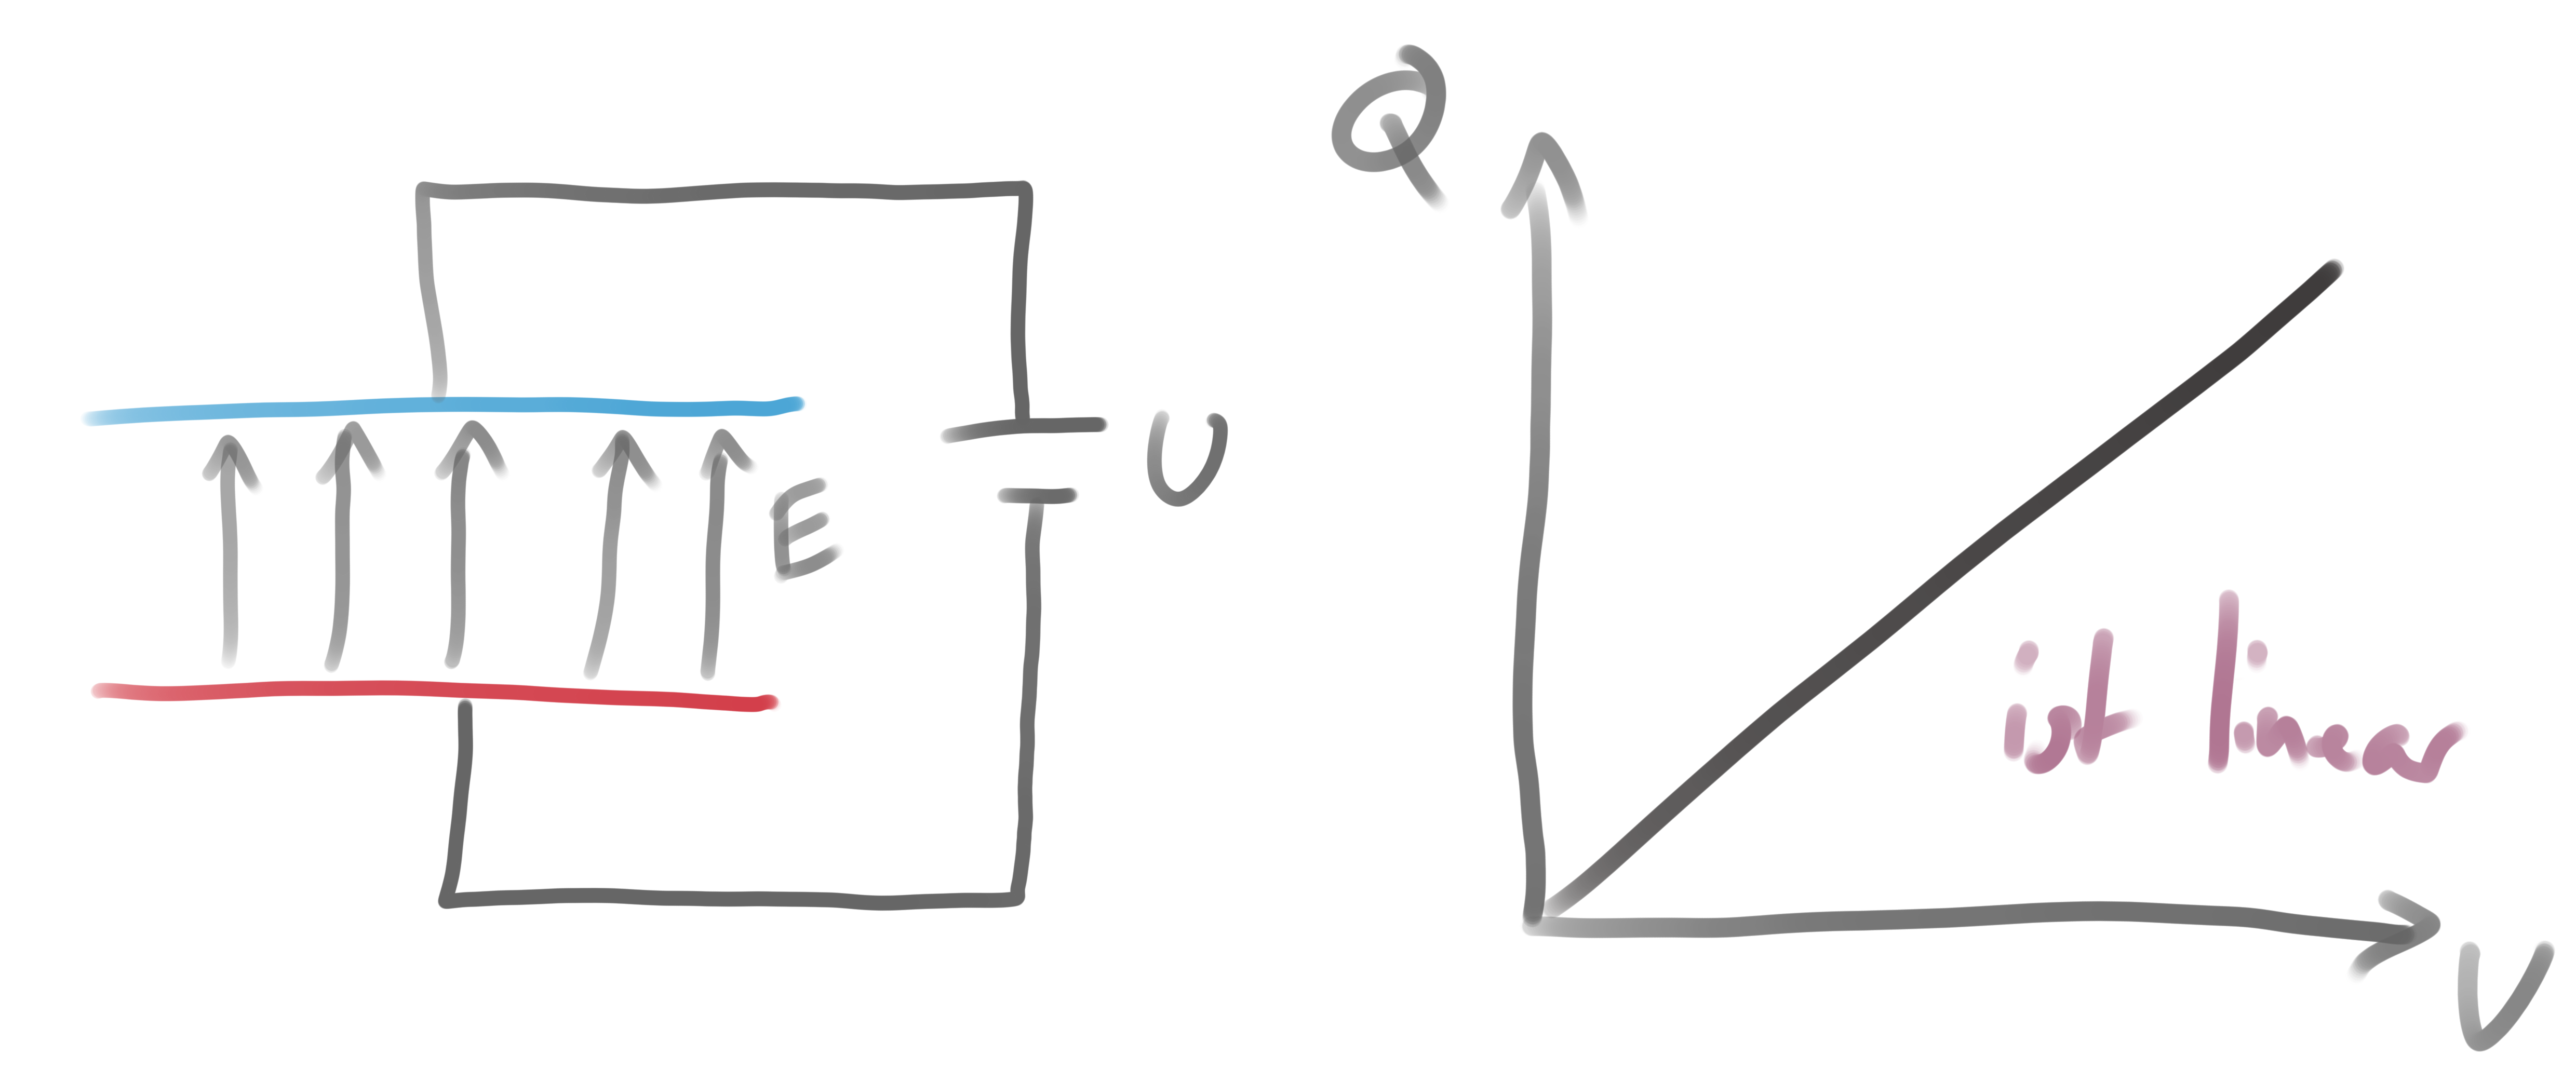 E
U
Q
ist linear
U